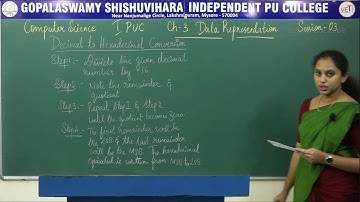 GOPALASWAMY SHISHUVIHARA INDEPENDENT PU COLLEGE
Near Nanjumalige Circle, Lakshmipuram, Mysore - 570004
Computer Science I PUC Ch-3 Data Representation Session-03
Decimal to Hexadecimal Conversion
Step1:- Divide the given decimal
number by 16
Step2:- Note the remainder &
quotient
Step3:- Repeat Step 1 & Step 2
until the quotient becomes zero
Step4:- The first remainder will be
the LSB & the last remainder
will be the MSB. The hexadecimal
equivalent is written from MSB to LSB.